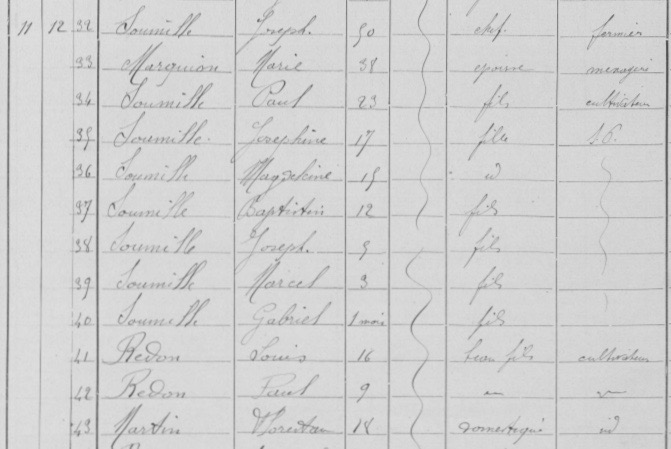 11 12 32 Soumille Joseph 50 chef fermier
33 Marquion Marie 38 épouse ménagère
34 Soumille Paul 23 fils cultivateur
35 Soumille Joséphine 17 fille s.p.
36 Soumille Magdeleine 15 id
37 Soumille Baptistin 12 fils
38 Soumille Joseph 5 fils
39 Soumille Marcel 3 fils
40 Soumille Gabriel 1 mois fils
41 Redon Louis 16 beau fils cultivateur
42 Redon Paul 9
43 Martin 18 domestique id